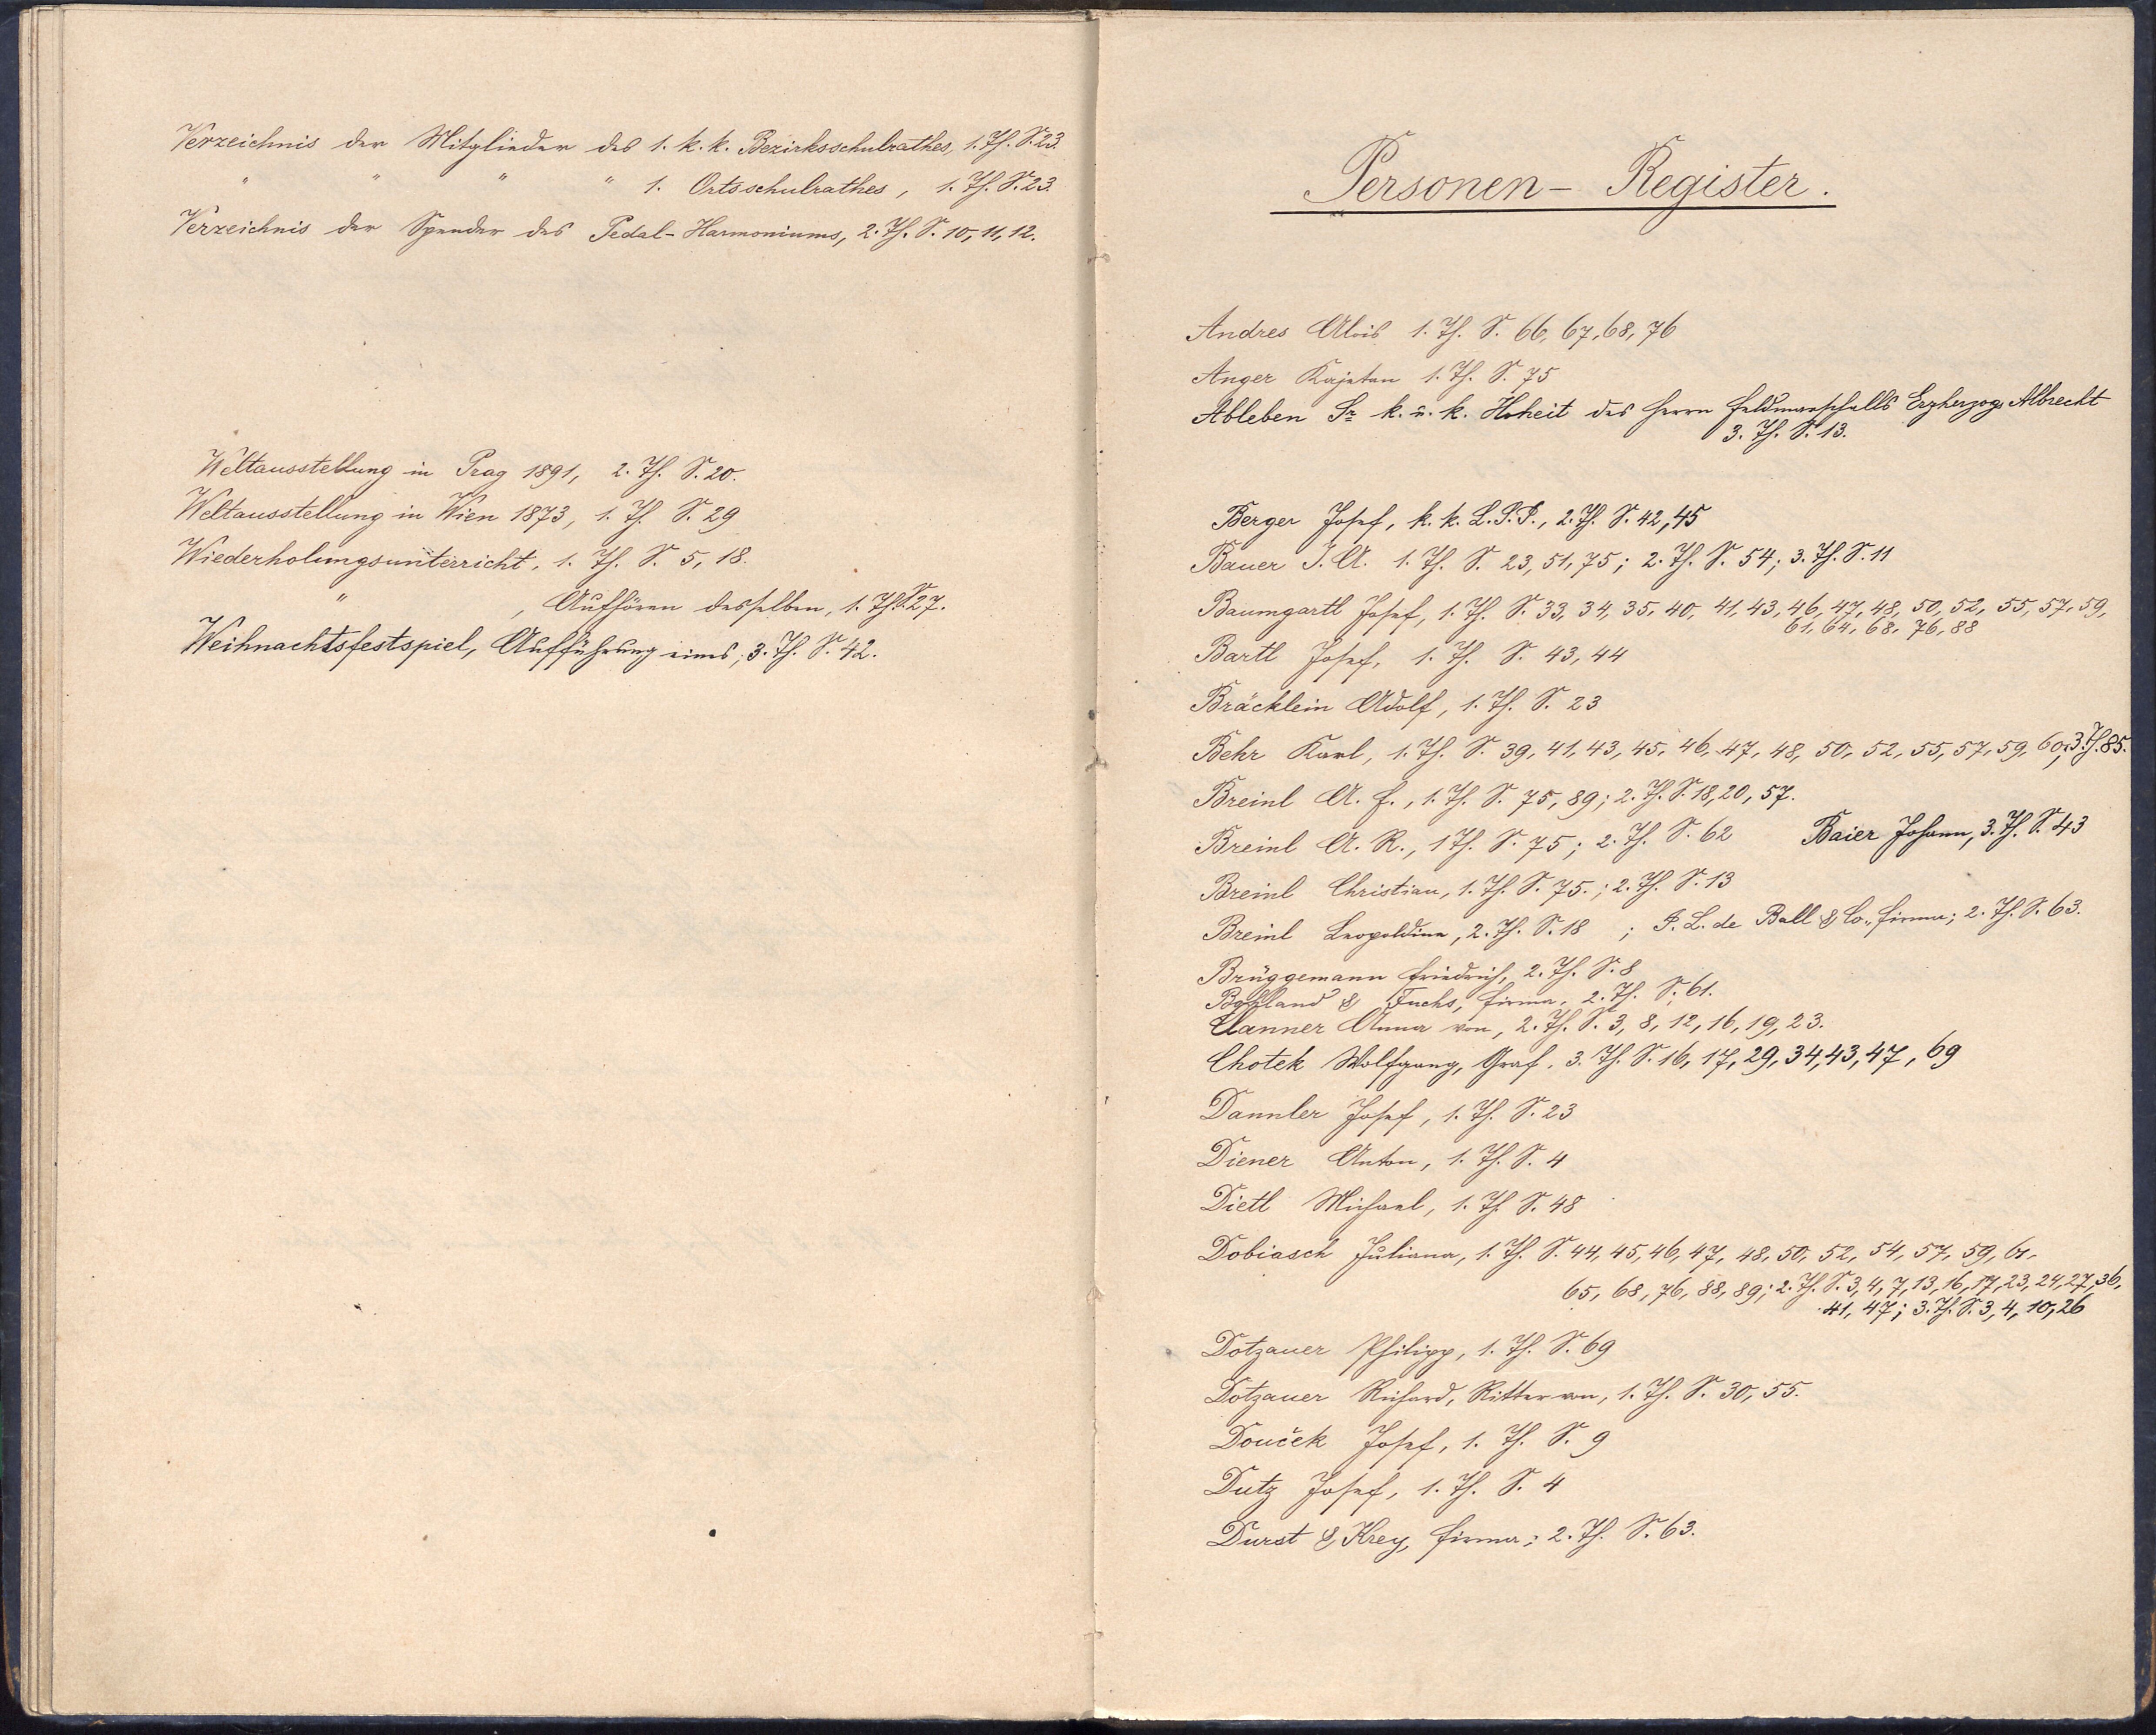 Verzeichnis der Mitglieder des 1. k. k. Bezirksschulrathes, 1. Th. S. 23.
" " " " 1. Ortsschulrathes, 1. Th. S. 23.
Verzeichnis der Spender des Pedal-Harmoniums, 2. Th. S. 10, 11, 12.
Weltausstellung in Prag 1891, 2. Th. S. 20.
Weltausstellung in Wien 1873, 1. Th. S. 29
Wiederholungsunterricht, 1. Th. S. 5, 18.
" , Aufhören desselben, 1. Th. S. 27.
Weihnachtsfestspiel, Aufführung eines; 3. Th. S. 42.
Personen-Register.
Andres Alois 1. Th. S. 66, 67, 68, 76
Anger Kajetan 1. Th. S. 75
Ableben Sr k. u. k. Hoheit des Herrn Feldmarschalls Erzherzogs Albrecht
3. Th. S. 13.
Berger Josef, k. k. L.S.I., 2. Th. S. 42, 45
Bauer J. A. 1. Th. S. 23, 51, 75; 2. Th. S. 54; 3. Th. S. 11
Baumgartl Josef, 1. Th. S. 33, 34, 35, 40, 41, 43, 46, 47, 48, 50, 52, 55, 57, 59,
61, 64, 68, 76, 88
Bartl Josef, 1. Th. S. 43, 44
Bräcklein Adolf, 1. Th. S. 23
Behr Karl, 1. Th. S. 39, 41, 43, 45, 46, 47, 48, 50, 52, 55, 57, 59, 60; 3. Th. 85.
Breinl A. F., 1. Th. S. 75, 89; 2. Th. S. 18, 20, 57.
Breinl A. R., 1 Th. S. 75; 2. Th. S. 62 Baier Johann, 3. Th. S. 43
Breinl Christian, 1. Th. S. 75.; 2. Th. S. 13
Breinl Leopoldine, 2. Th. S. 18 ; J. L. de Ball & Co., Firma; 2. Th. S. 63.
Brüggemann Friedrich, 2. Th. S. 8
& Fuchs, Firma, 2. Th. S. 61.
Clanner Anna von, 2. Th. S. 3, 8, 12, 16, 19, 23.
Chotek Wolfgang, Graf, 3. Th. S. 16, 17, 29, 34, 43, 47, 69
Dannler Josef, 1. Th. S. 23
Diener Anton, 1. Th. S. 4
Dietl Michael, 1. Th. S. 48
Dobiasch Juliana, 1. Th. S. 44, 45, 46, 47, 48, 50, 52, 54, 57, 59, 61,
65, 68, 76, 88, 89; 2. Th. S. 3, 4, 7, 13, 16, 17, 23, 24, 27, 36,
41, 47; 3. Th. S. 3, 4, 10, 26
Dotzauer Philipp, 1. Th. S. 69
Dotzauer Richard, Ritter von, 1. Th. S. 30, 55.
Douček Josef, 1. Th. S. 9
Dutz Josef, 1. Th. S. 4
Durst & Krey, Firma; 2. Th. S. 63.